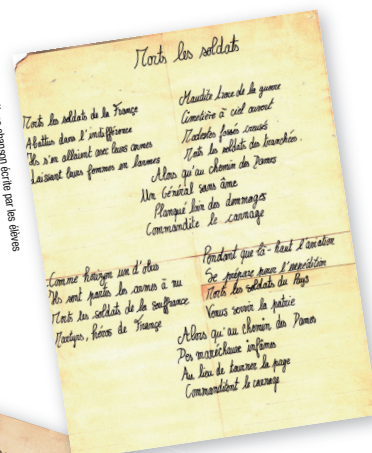 Morts les soldats
Morts les soldats de la France
Abattus dans l'indifférence
Ils s'en allaient avec leurs armes
Laissant leurs femmes en larmes
Maudite terre de la guerre
Cimetière à ciel ouvert
Modestes fossés creusés
Morts les soldats des tranchées.
Alors qu'au chemin des Dames
Un Général sans âme
Planqué loin des dommages
Commandite le carnage
Comme horizon un d'obus
Ils sont partis les armes à nu
Morts les soldats de la souffrance
Martyrs, héros de France
Pendant que là-haut l'aviation
Se prépare pour l'expédition
Morts les soldats du Pays
Venus servir la patrie
Alors qu'au chemin des Dames
Des maréchaux infâmes
Au lieu de tourner la page
Commanditent le carnage
chanson écrite par les élèves